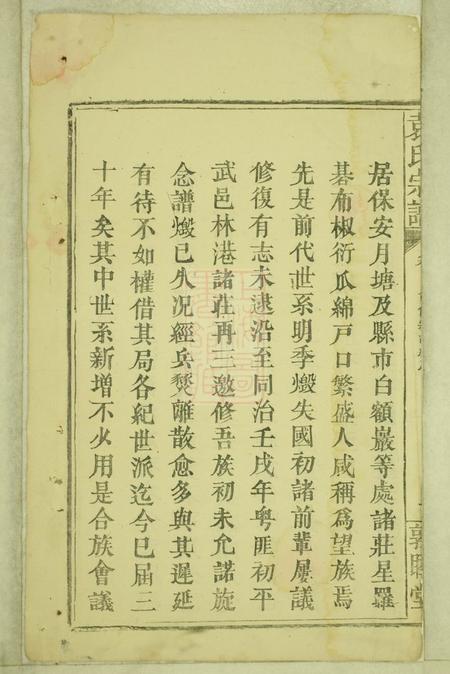 居保安月塘及縣市白額巖等處諸莊星羅
碁布椒衍瓜綿戸口繁盛人咸稱爲望族焉
先是前代世系明季燬失國初諸前輩屢議
修復有志未逮沿至同治壬戌年粵匪初平
武邑林港諸莊再三邀修吾族初未允諾旋
念譜燬已久况經兵燹離散愈多與其遲延
有待不如權借其局各紀世派迄今已屆三
十年矣其中世系新增不少用是合族會議
袁氏宗譜